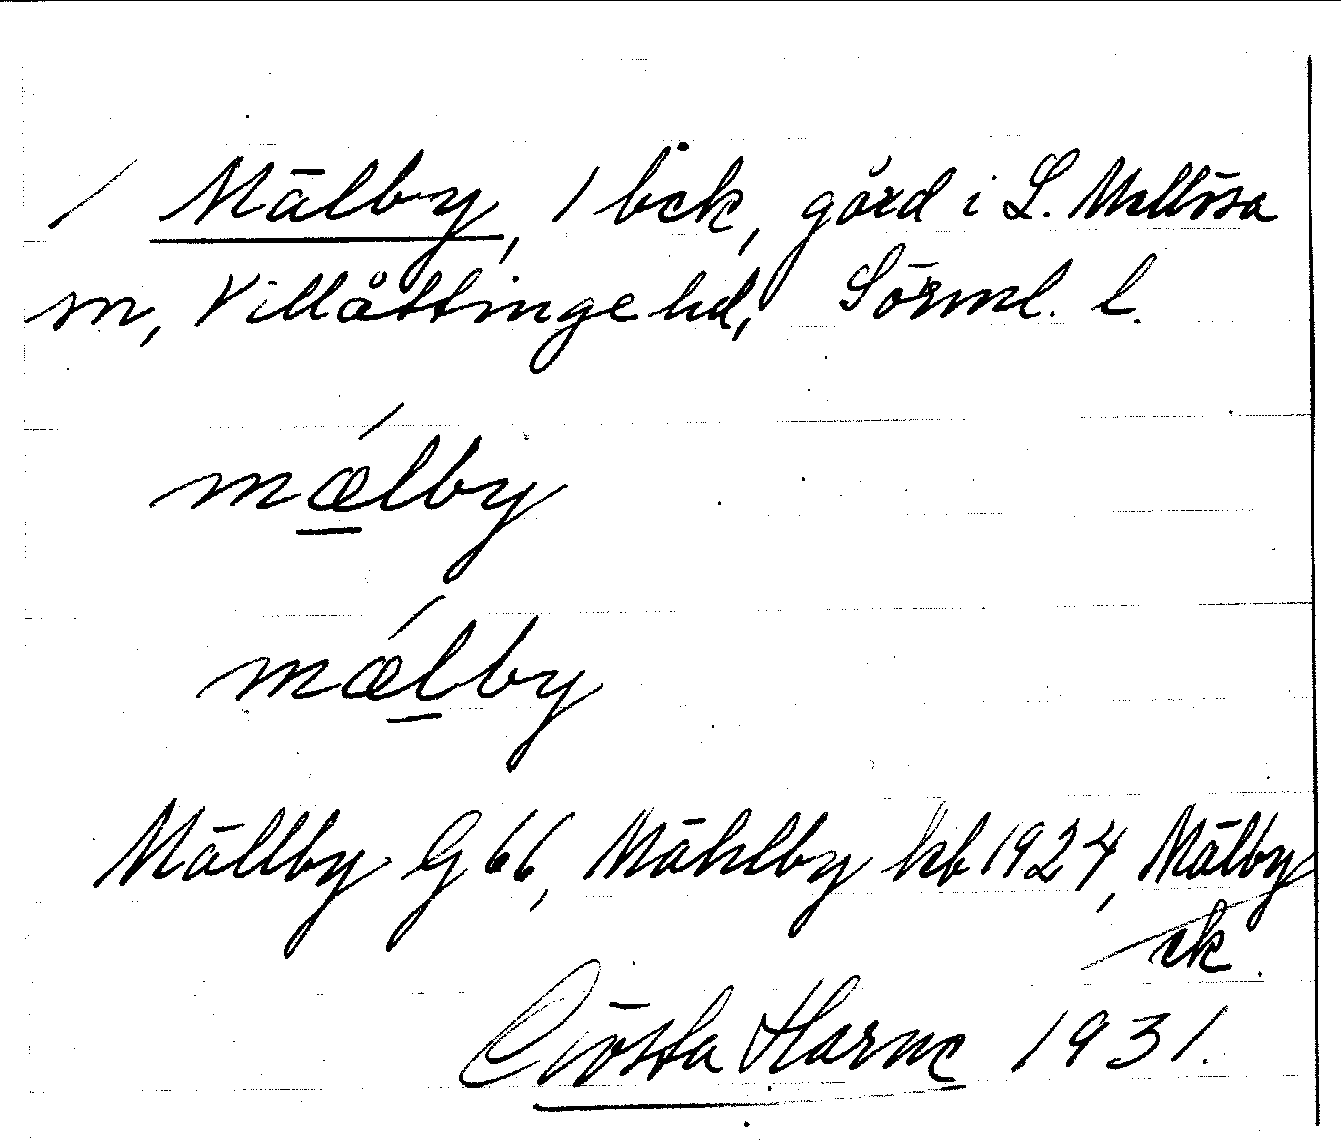 / Mälby, 1 bck, gård i L. Mellösa
sn, Villåttinge hd, Sörml. l.
mǽlby
mǽlby
Mällby G 66, Mählby kb 1924, Mälby
ek.
Gösta Harne 1931.